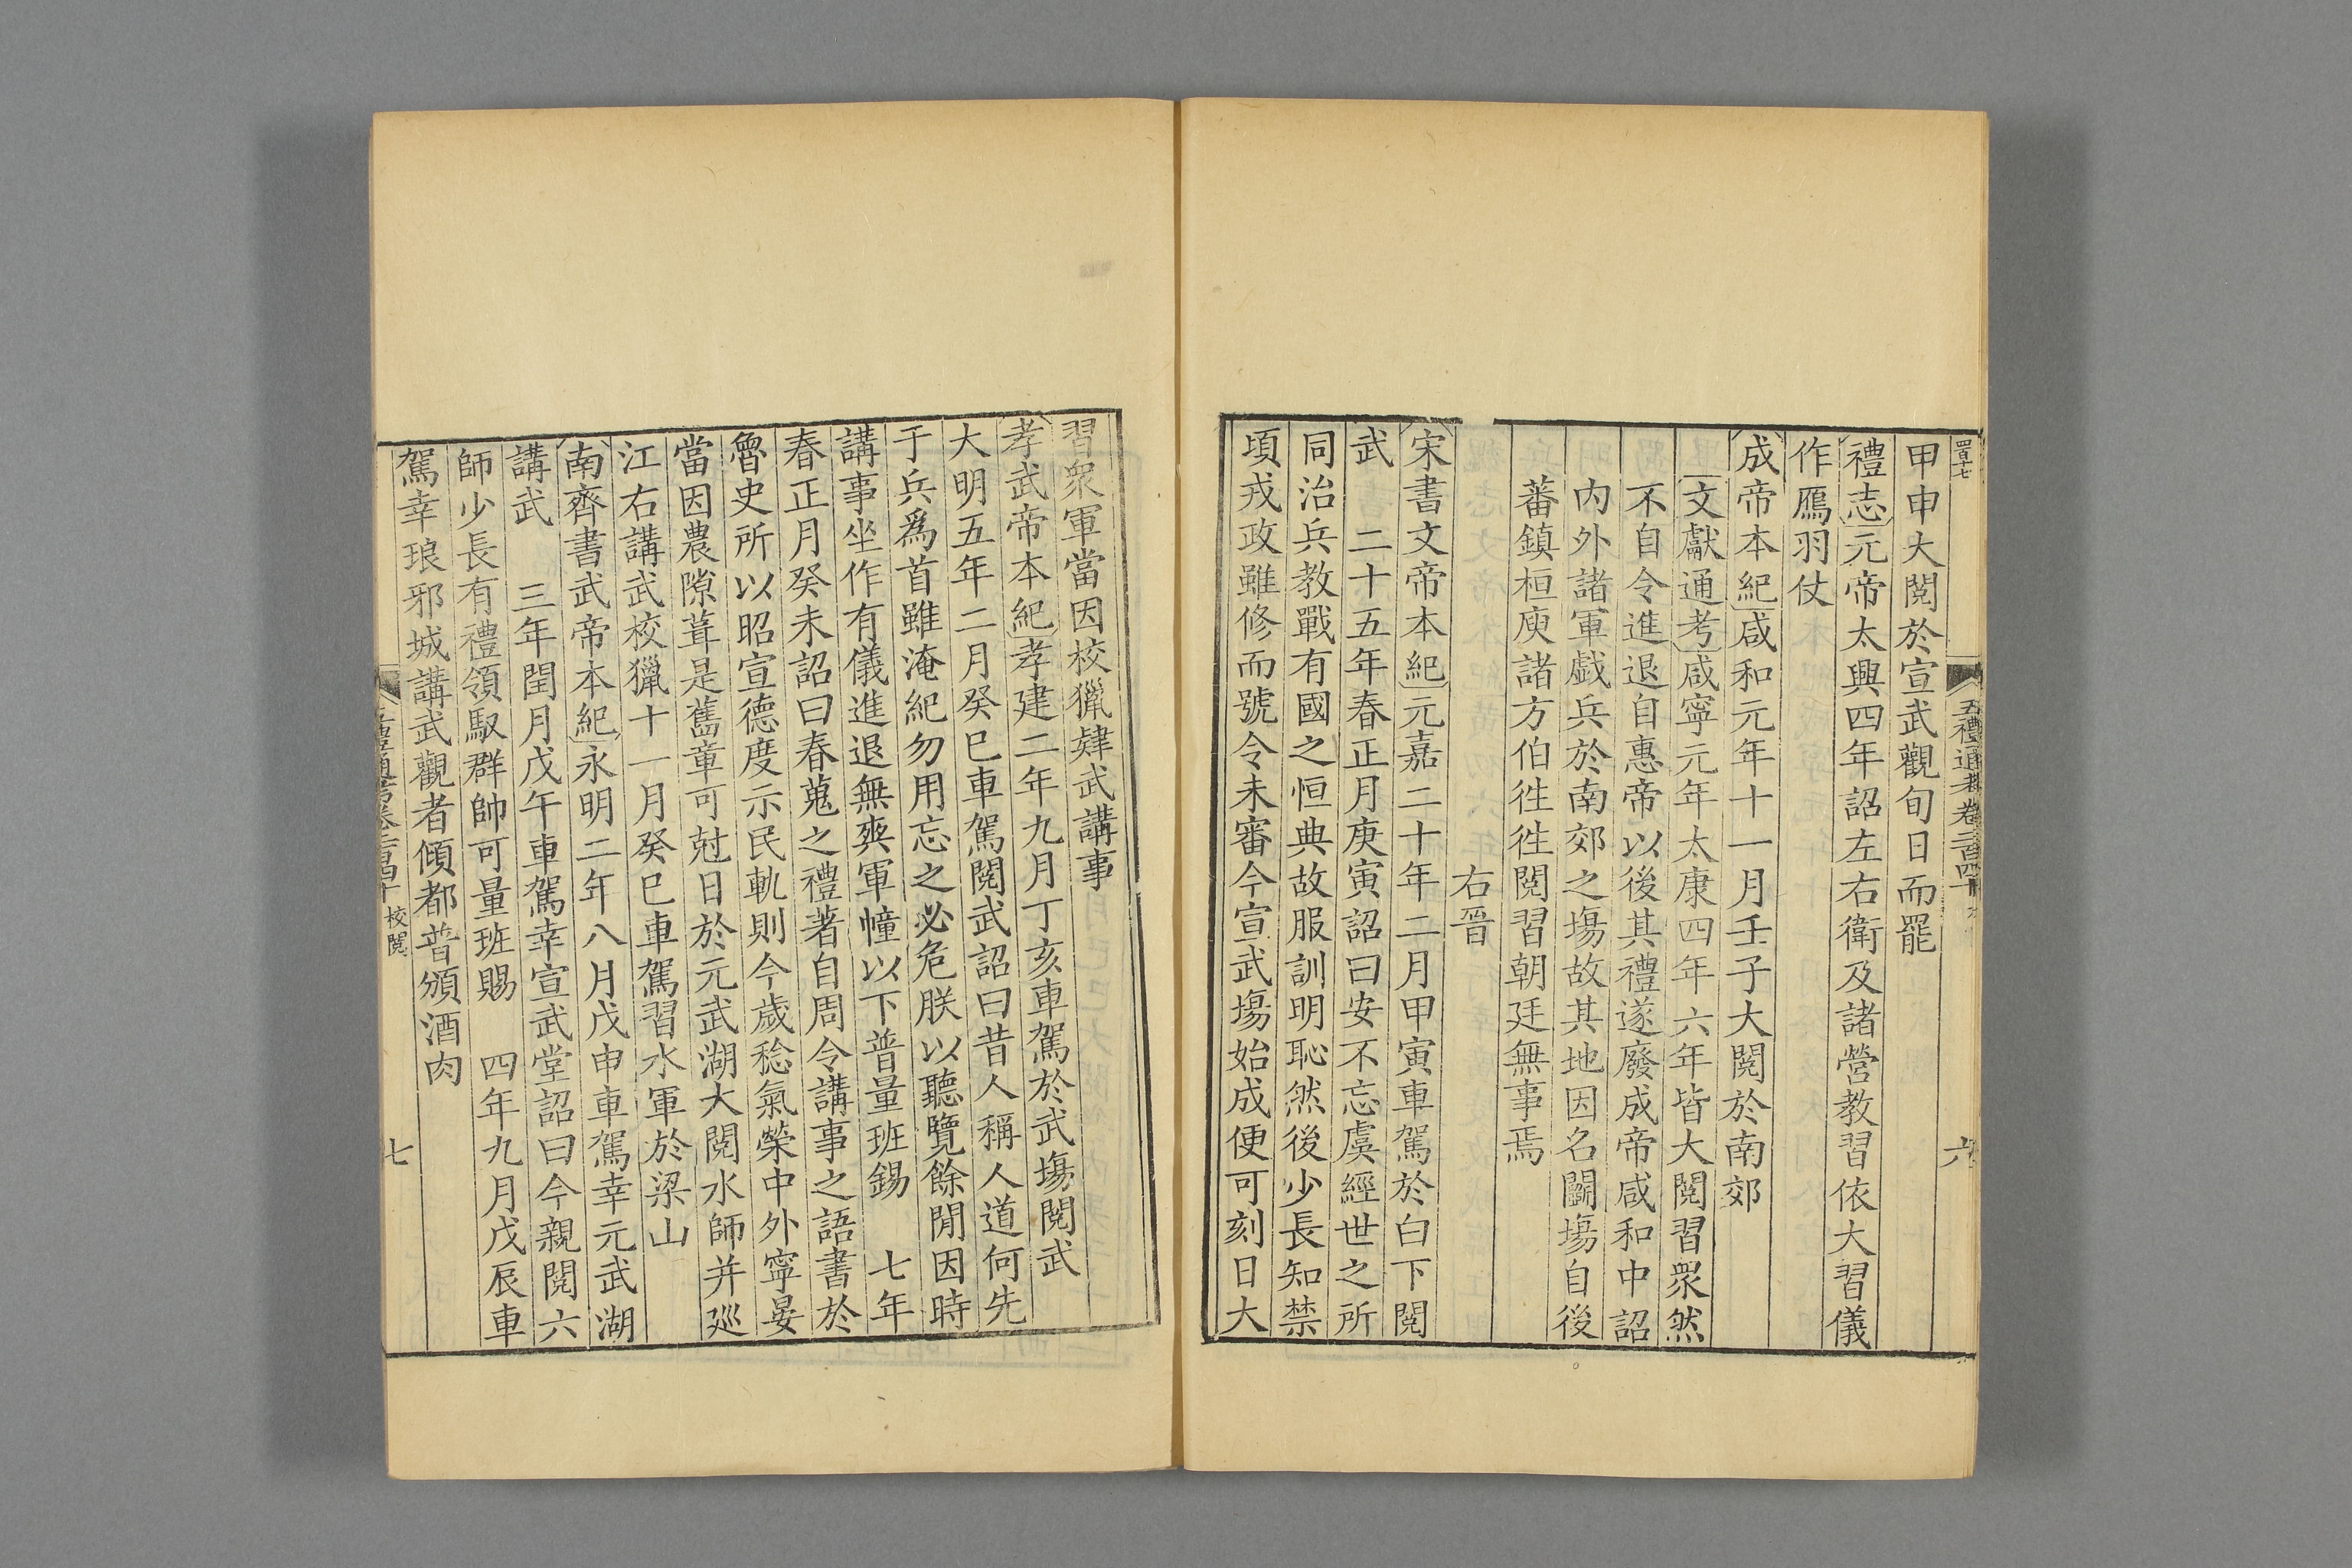 甲申大閱於宣武觀旬日而罷
禮志元帝太興四年詔左右衛及諸營教習依大習儀
作鴈羽仗
成帝本紀咸和元年十一月壬子大閱於南郊
文獻通考咸寧元年太康四年六年皆大閱習衆然
不自令進退自惠帝以後其禮遂廢成帝咸和中詔
內外諸軍戲兵於南郊之塲故其地因名鬭塲自後
蕃鎮桓庾諸方伯徃徃閱習朝廷無事焉
右晉
宋書文帝本紀元嘉二十年二月甲寅車駕於白下閱
武　二十五年春正月庚寅詔曰安不忘虞經世之所
同治兵教戰有國之恒典故服訓明恥然後少長知禁
頃戎政雖修而號令未審今宣武塲始成便可刻日大
習衆軍當因校獵肄武講事
孝武帝本紀孝建二年九月丁亥車駕於武塲閱武
大明五年二月癸巳車駕閱武詔曰昔人稱人道何先
于兵爲首雖淹紀勿用忘之必危朕以聽覽餘閒因時
講事坐作有儀進退無爽軍幢以下普量班錫　七年
春正月癸未詔曰春蒐之禮著自周令講事之語書於
魯史所以昭宣德度示民軌則今歲稔氣榮中外寧晏
當因農隙葺是舊章可尅日於元武湖大閱水師并廵
江右講武校獵十一月癸巳車駕習水軍於梁山
南齊書武帝本紀永明二年八月戊申車駕幸元武湖
講武　三年閏月戊午車駕幸宣武堂詔曰今親閱六
師少長有禮領馭群帥可量班賜　四年九月戊辰車
駕幸琅邪城講武觀者傾都普頒酒肉
五禮通考卷二百四十
六
校閱
七